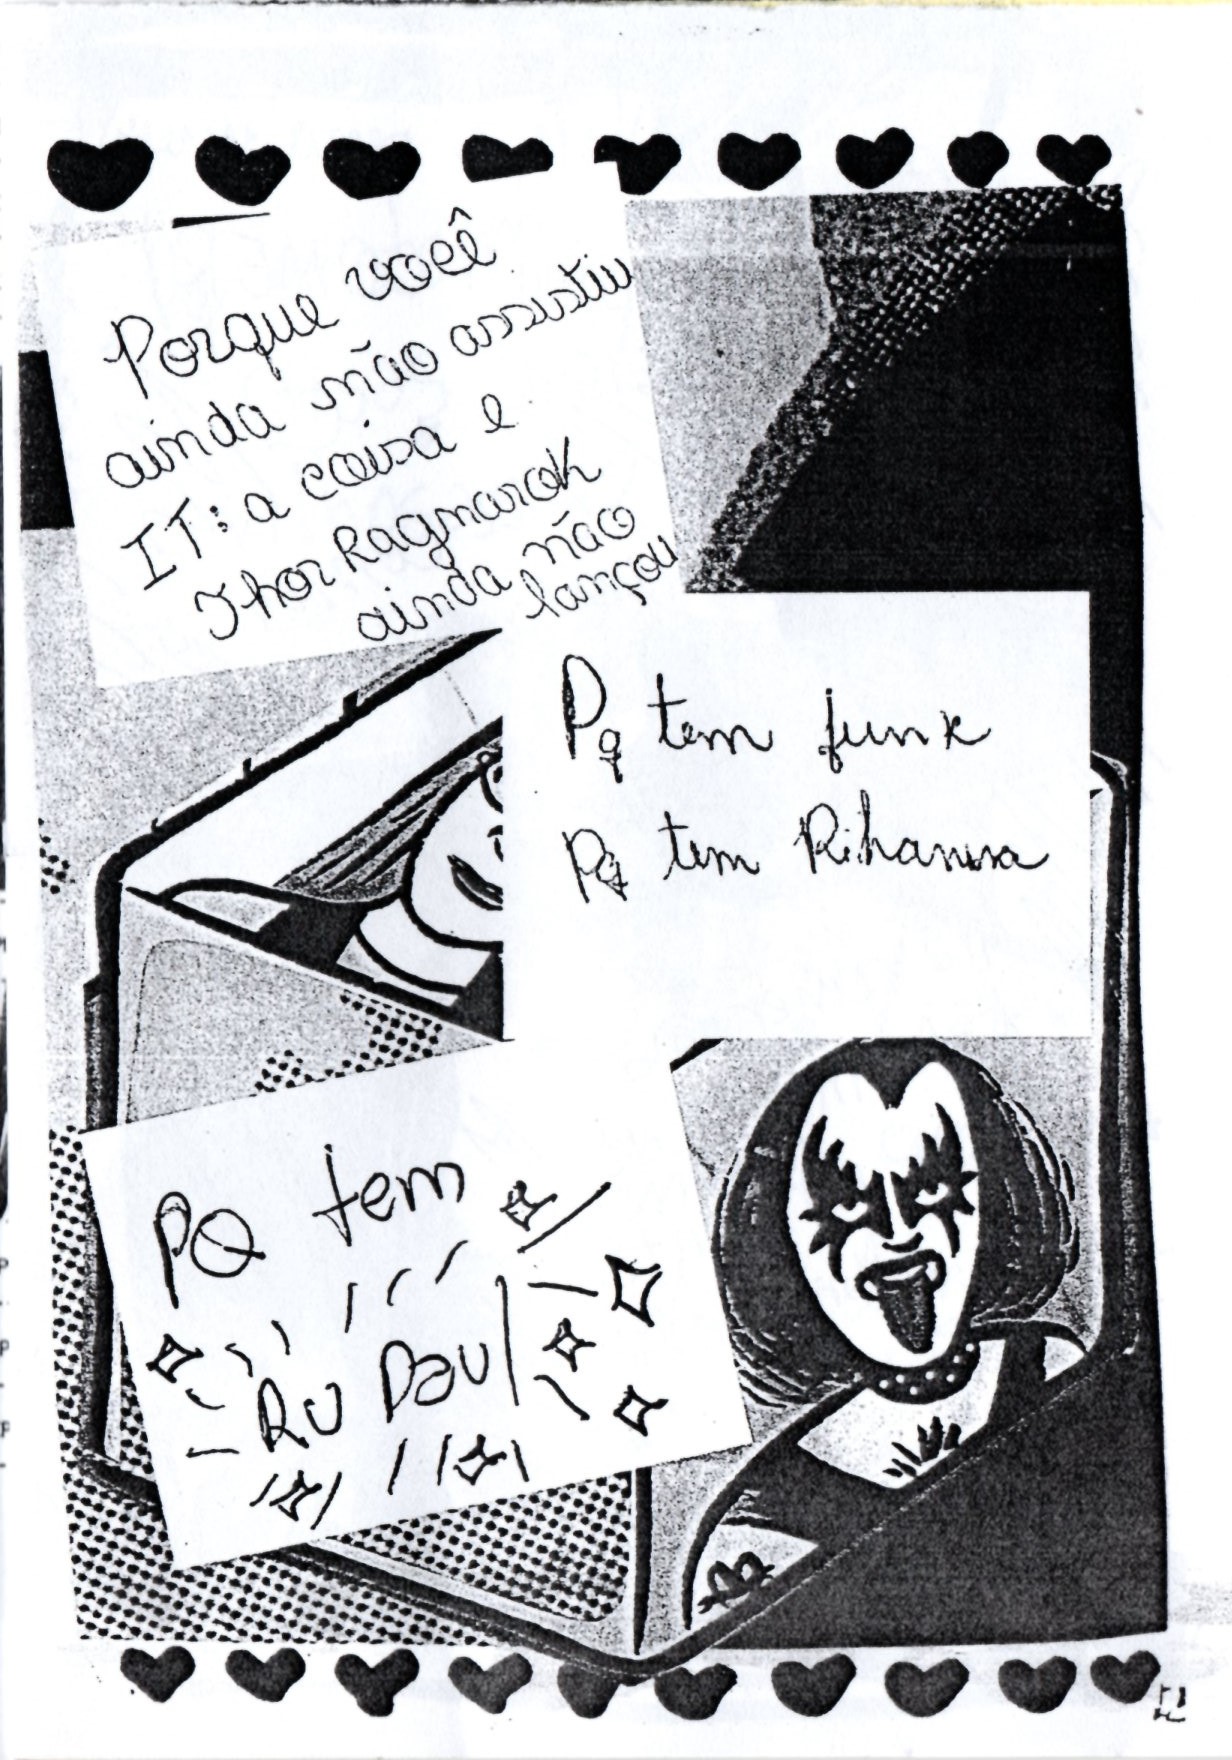 Porque você
ainda não assistiu
IT: a coisa e
Thor Ragnarok
ainda não
lançou
Pq tem funk
Pq tem Rihanna
PQ tem
Ru Paul